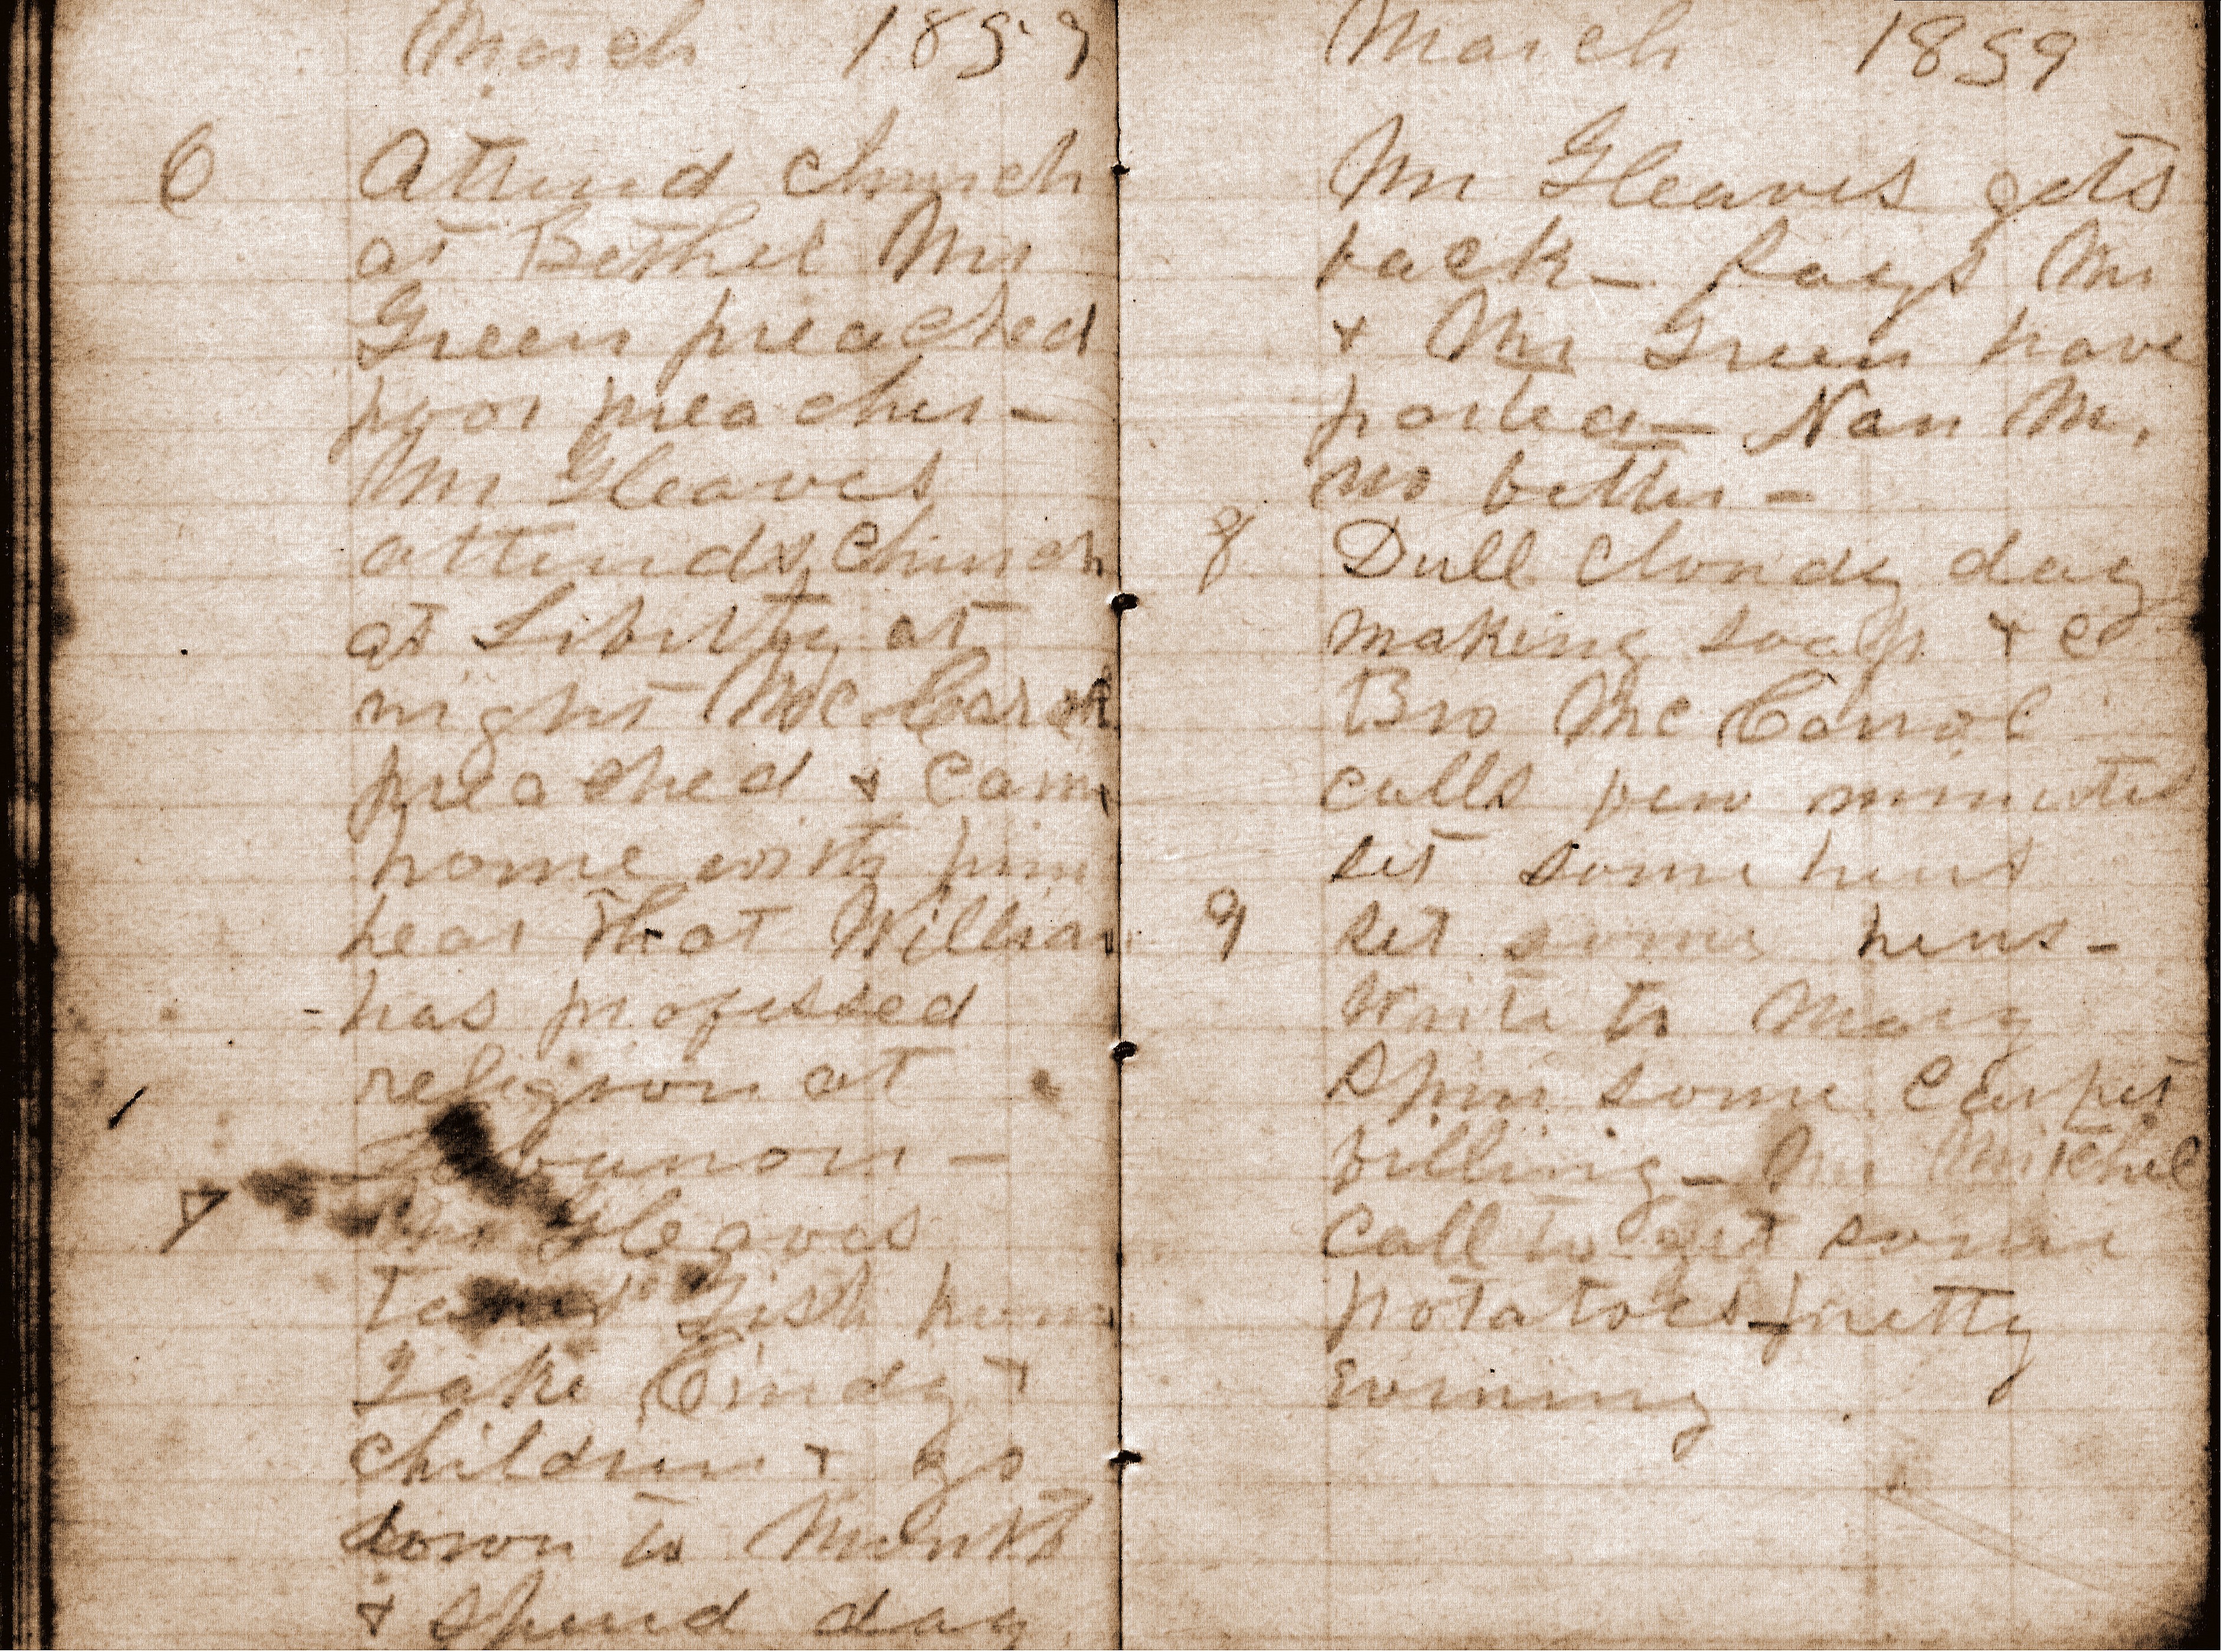 March 1859
6 Attend church
at Bethel Mr
Green preached
poor preacher -
Mr Gleaves
attends church
at Liberty at
night McCarol
preached & came
home with him
hear that William
- has professed
religion at
Lebanon -
7 Mr Gleaves
takes Fish home
Take Cindy &
children & go
down to Monks
& spend day
March 1859
Mr Gleaves gets
back - says Mr
& Mrs Green have
parted - Nan M.
no better -
8 Dull cloudy day
making soap & c
Bro Mc Carrol
calls few minutes
set some hens
9 set some hens -
Write to Mary
Spin some carpet
filling - Mr Mitchel
call to get some
potatoes - pretty
evening